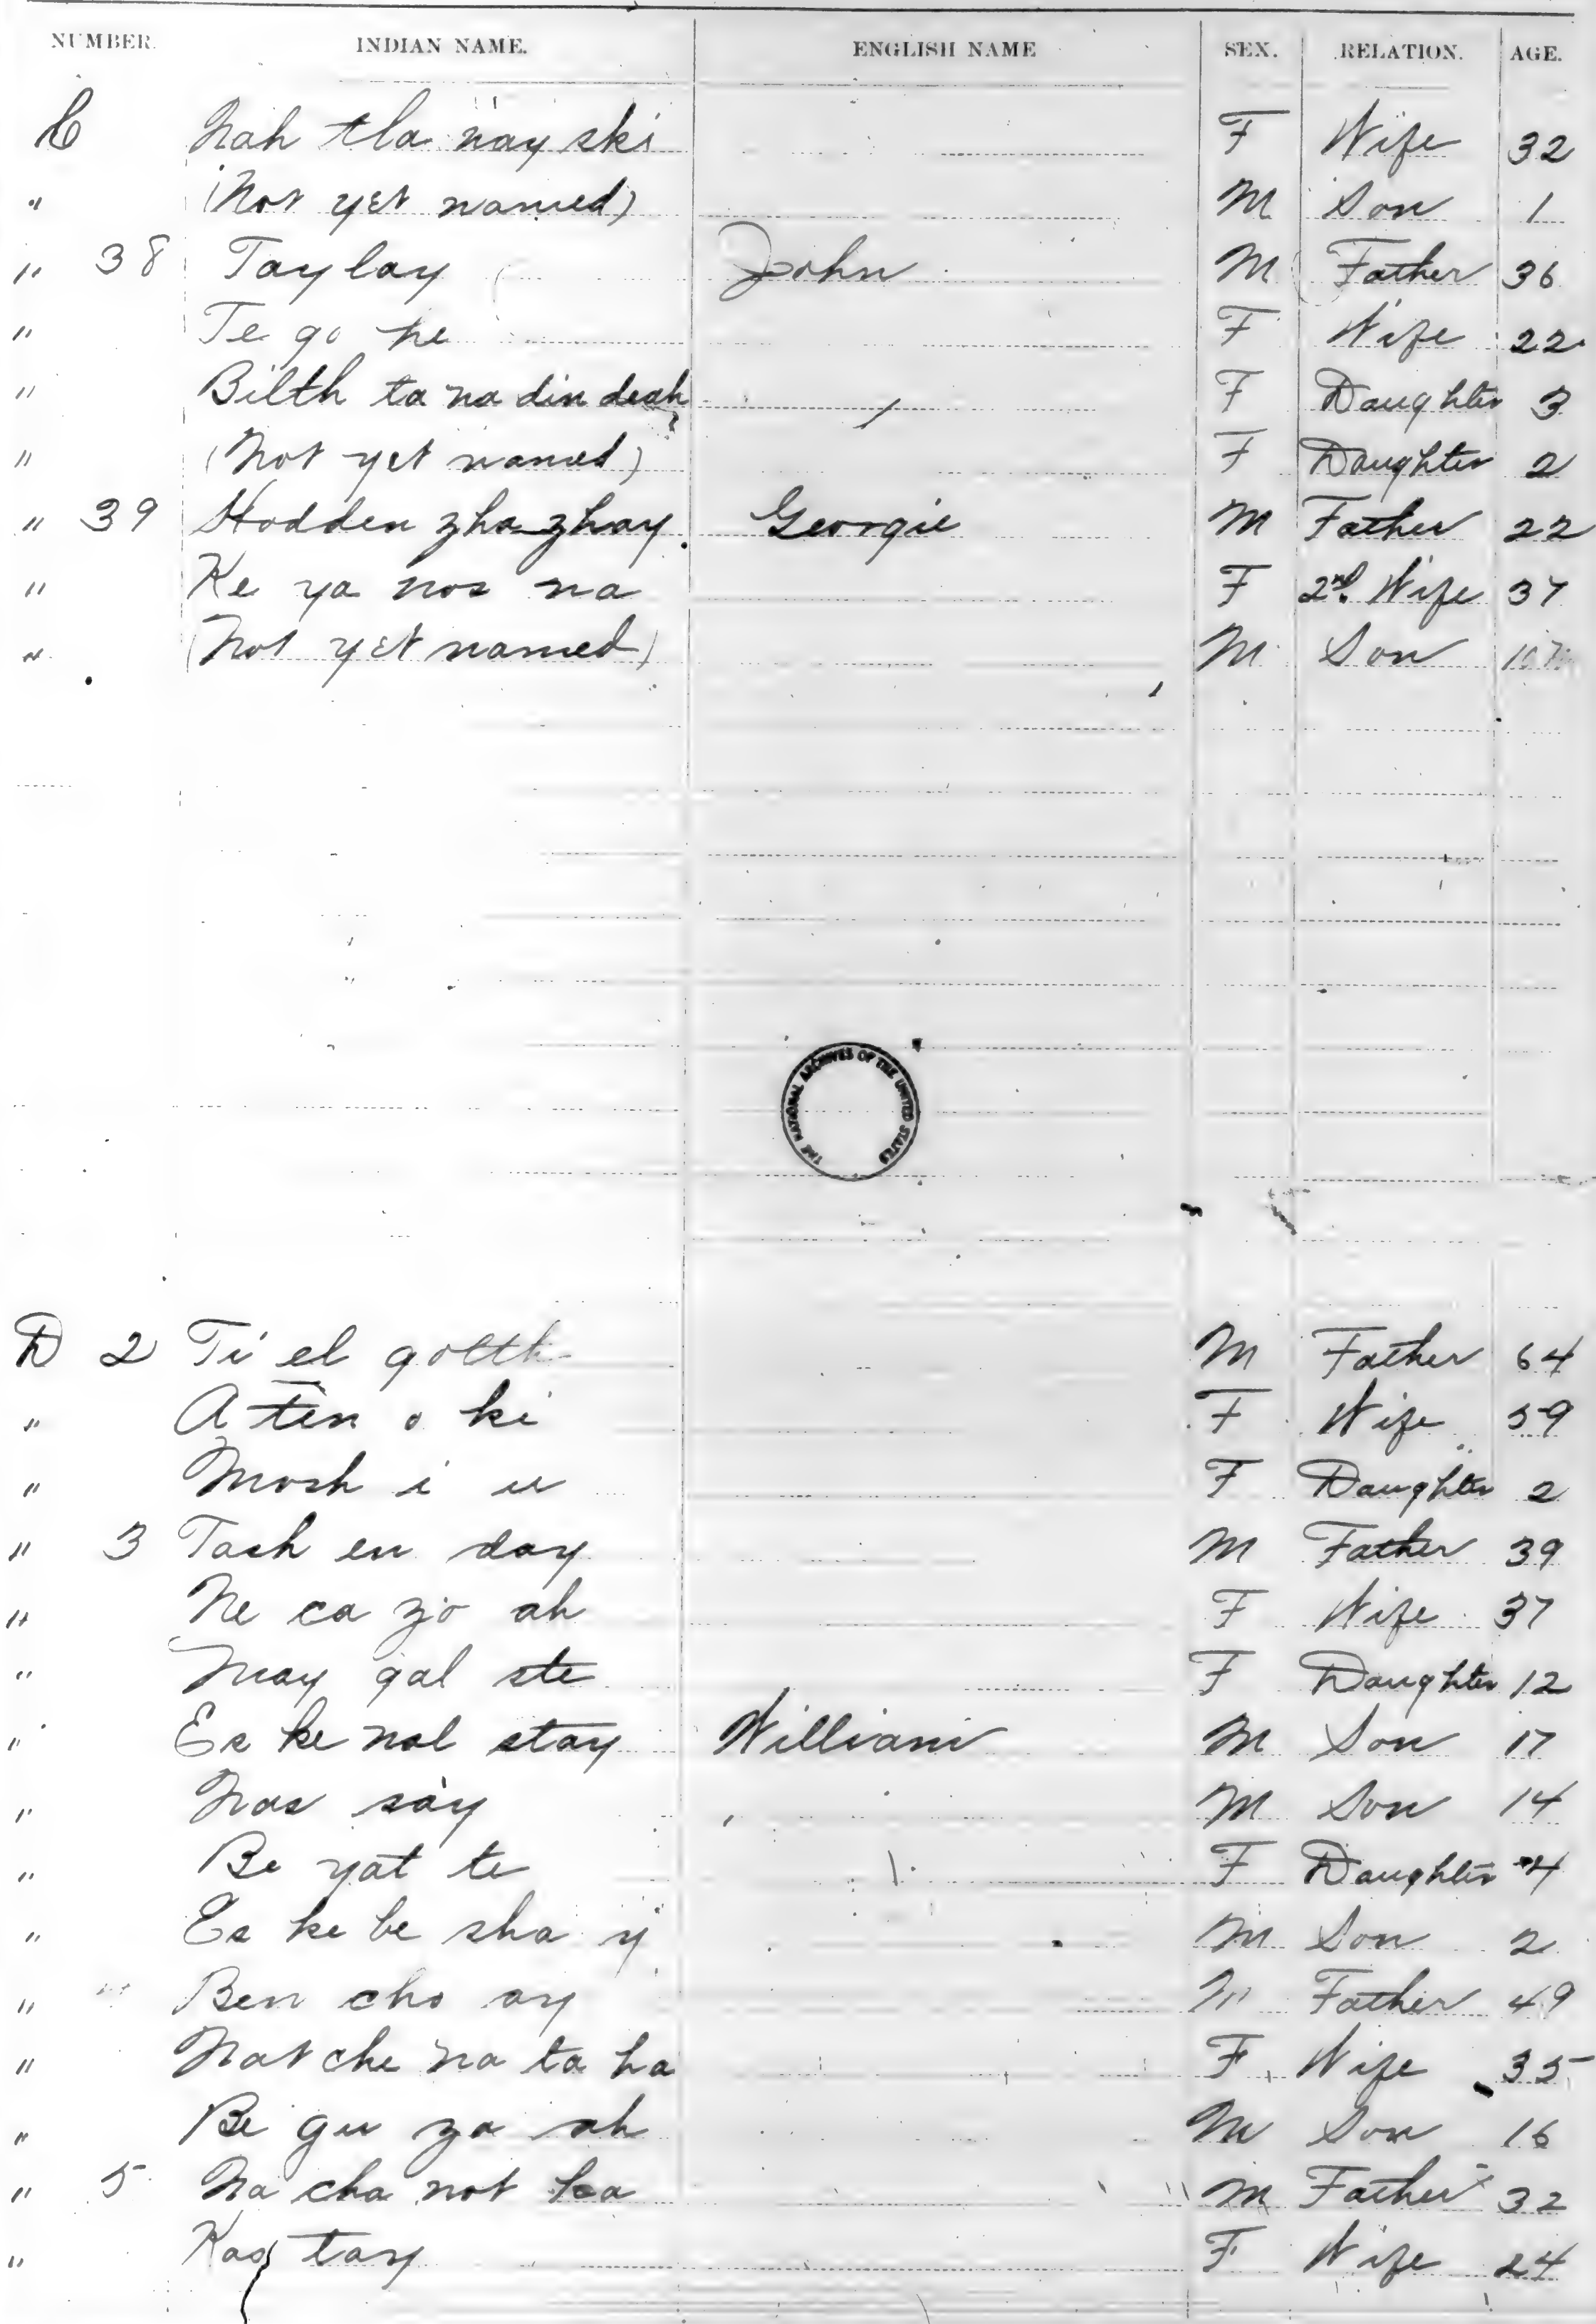 NUMBER. INDIAN NAME. ENGLISH NAME SEX. RELATION. AGE.
C Nah tla nay ski F Wife 32
" (Not yet named) M Son 1
" 38 Taylay John M Father 36
" Te go he F Wife 22
" Bilth ta na din deah F Daughter 3
" (Not yet named) F Daughter 2
" 39 Hodden zha zhay Georgie M Father 22
" Ke ya nos na F 2nd. Wife 37
" (Not yet named) M Son
THE NATIONAL ARCHIVES OF THE UNITED STATES
D 2 Ti el goltth M Father 64
" A ten o ki F Wife 59
" Mosh i u F Daughter 2
" 3 Tash en day M Father 39
" Ne ca zo ah F Wife 37
" May gal ste F Daughter 12
" Es ke nal stay William M Son 17
" Nas say M Son 14
" Be yat te F Daughter 4
" Es ke be sha y M Son 2
" Ben cho ay M Father 49
" Nat che na ta ha F Wife 35
" Be gu za ah M Son 16
" 5 Na cha not ha M Father 32
" Kas tay F Wife 24